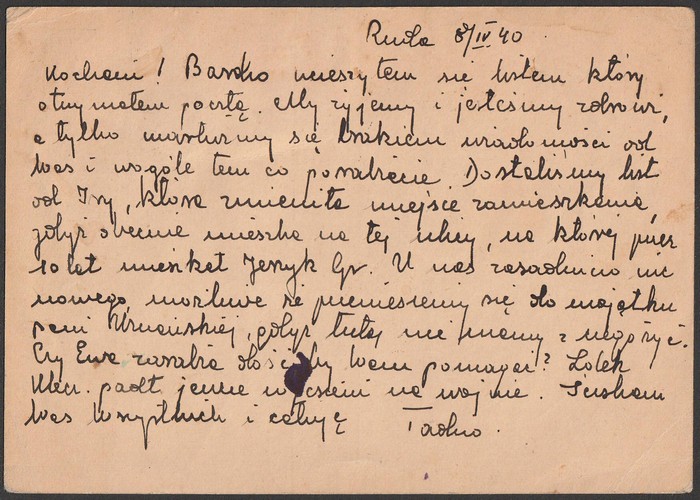 Ruda 8/IV 40.
Kochani! Bardzo ucieszyłem się listem który
otrzymałem pocztą. My żyjemy i jesteśmy zdrowi,
a tylko martwimy się brakiem wiadomości od
Was i wogóle tem co porabiacie. Dostaliśmy list
od Iry, która zmieniła miejsce zamieszkania,
gdyż obecnie mieszka na tej ulicy, na której przez
10 lat mieszkał Jerzyk Gr. U nas zasadniczo nic
nowego, możliwe że przeniesiemy się do majątku
pani, gdyż tutaj nie mamy z czego żyć.
Czy Ewa zarabia dość by Wam pomagać? Lolek
padł jeszcze we wrześniu na wojnie. Ściskam
Was wszystkich i całuję Tadzio.